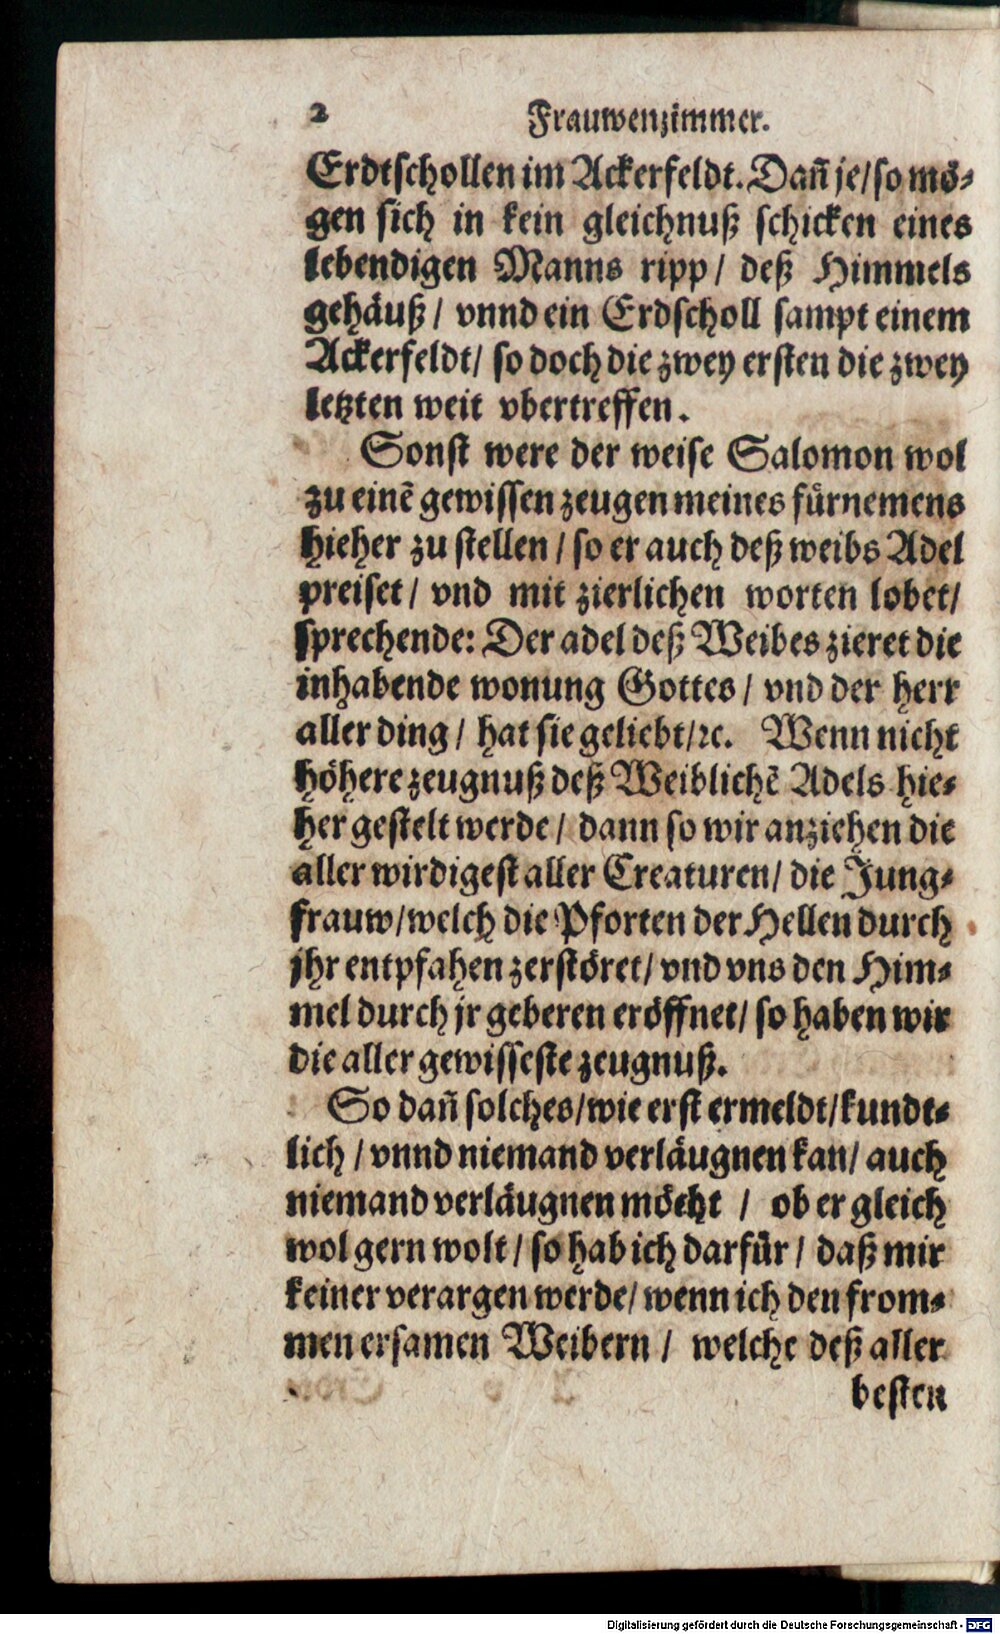 2 Frauwenzimmer.
Erdtschollen im Ackerfeldt. Dañ je/ so mö-
gen sich in kein gleichnuß schicken eines
lebendigen Manns ripp/ deß Himmels
gehäuß/ vnnd ein Erdscholl sampt einem
Ackerfeldt/ so doch die zwey ersten die zwey
letzten weit vbertreffen.
Sonst were der weise Salomon wol
zu einẽ gewissen zeugen meines fürnemens
hieher zu stellen/ so er auch deß weibs Adel
preiset/ vnd mit zierlichen worten lobet/
sprechende: Der adel deß Weibes zieret die
inhabende wonung Gottes/ vnd der herr
aller ding/ hat sie geliebt/ ꝛc. Wenn nicht
höhere zeugnuß deß Weiblichẽ Adels hie-
her gestelt werde/ dann so wir anziehen die
aller wirdigest aller Creaturen/ die Jung-
frauw/ welch die Pforten der Hellen durch
jhr entpfahen zerstöret/ vnd vns den Him-
mel durch jr geberen eröffnet/ so haben wir
die aller gewisseste zeugnuß.
So dañ solches/ wie erst ermeldt/ kundt-
lich/ vnnd niemand verläugnen kan/ auch
niemand verläugnen möcht/ ob er gleich
wol gern wolt/ so hab ich darfür/ daß mir
keiner verargen werde/ wenn ich den from-
men ersamen Weibern/ welche deß aller
besten
Digitalisierung gefördert durch die Deutsche Forschungsgemeinschaft - DFG